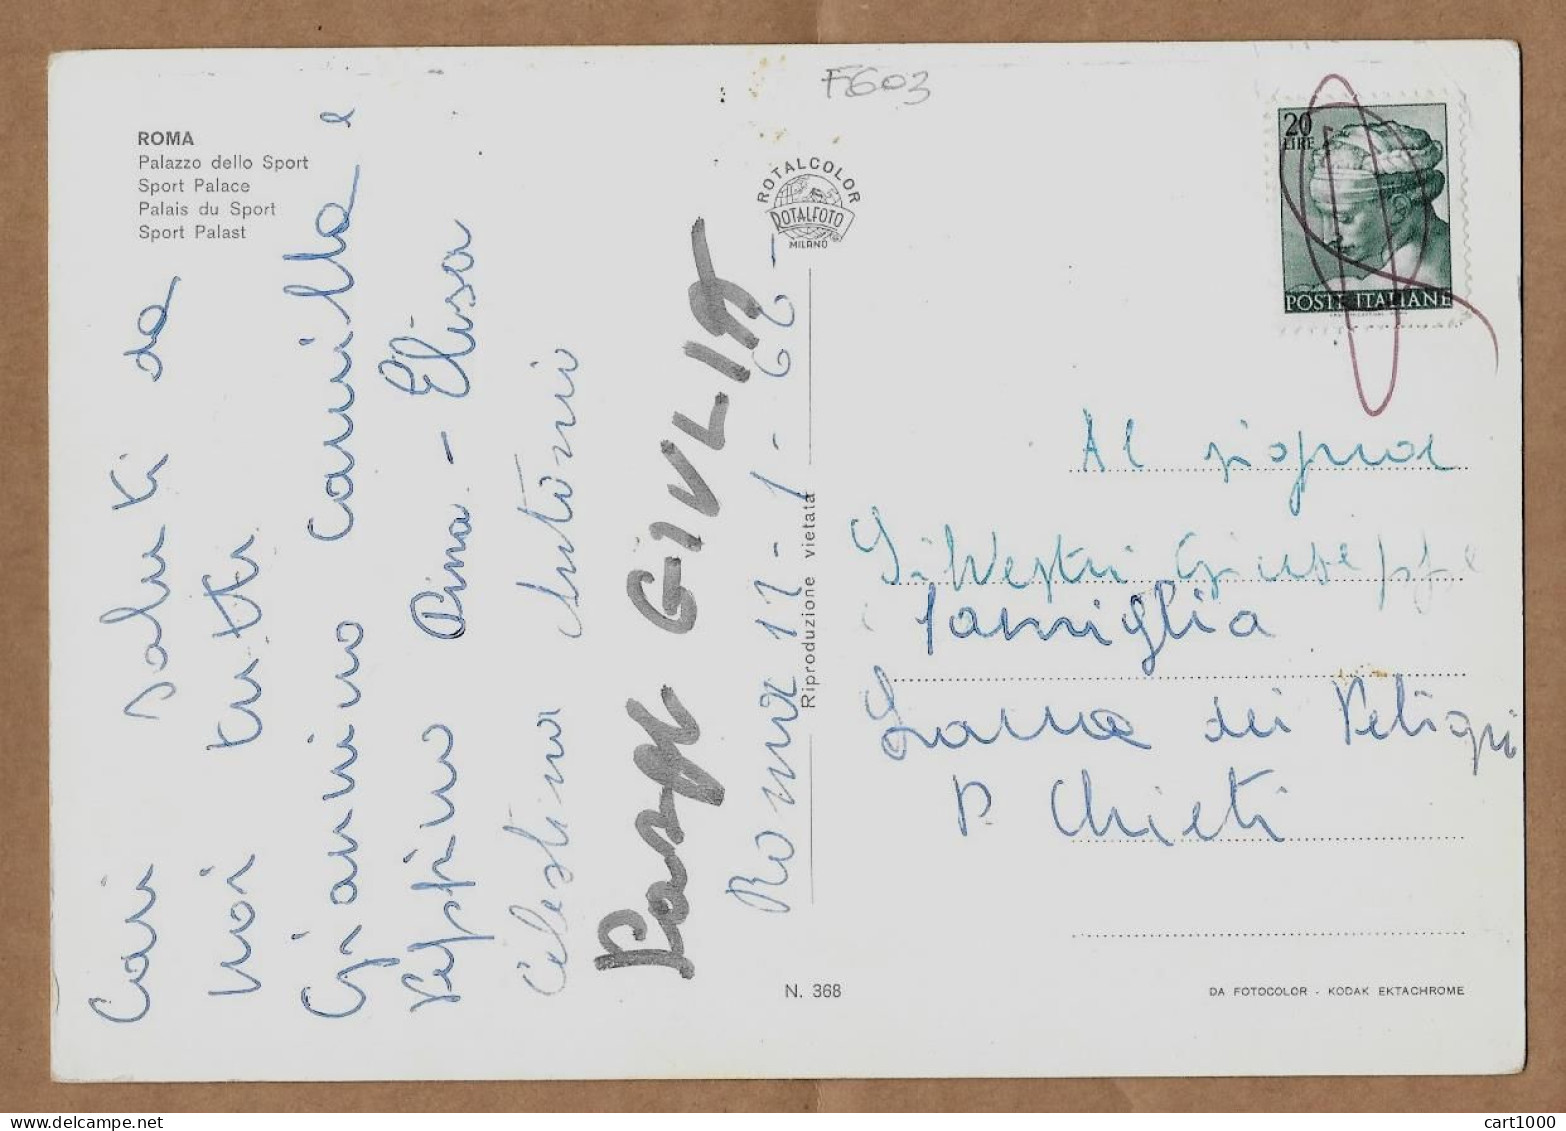 F603
ROMA
Palazzo dello Sport
Sport Palace
Palais du Sport
Sport Palast
ROTALCOLOR
ROTALFOTO
MILANO
20
LIRE
POSTE ITALIANE
Cari saluti da
noi tutti
Giannino Camilla e
Peppino Pina - Elisa
Celestina Antonio
GIULIA
Roma 12-1-62-
Riproduzione vietata
Al signor
Silvestri Giuseppe
famiglia
Lama dei Peligni
P. Chieti
N. 368
DA FOTOCOLOR - KODAK EKTACHROME
cart1000